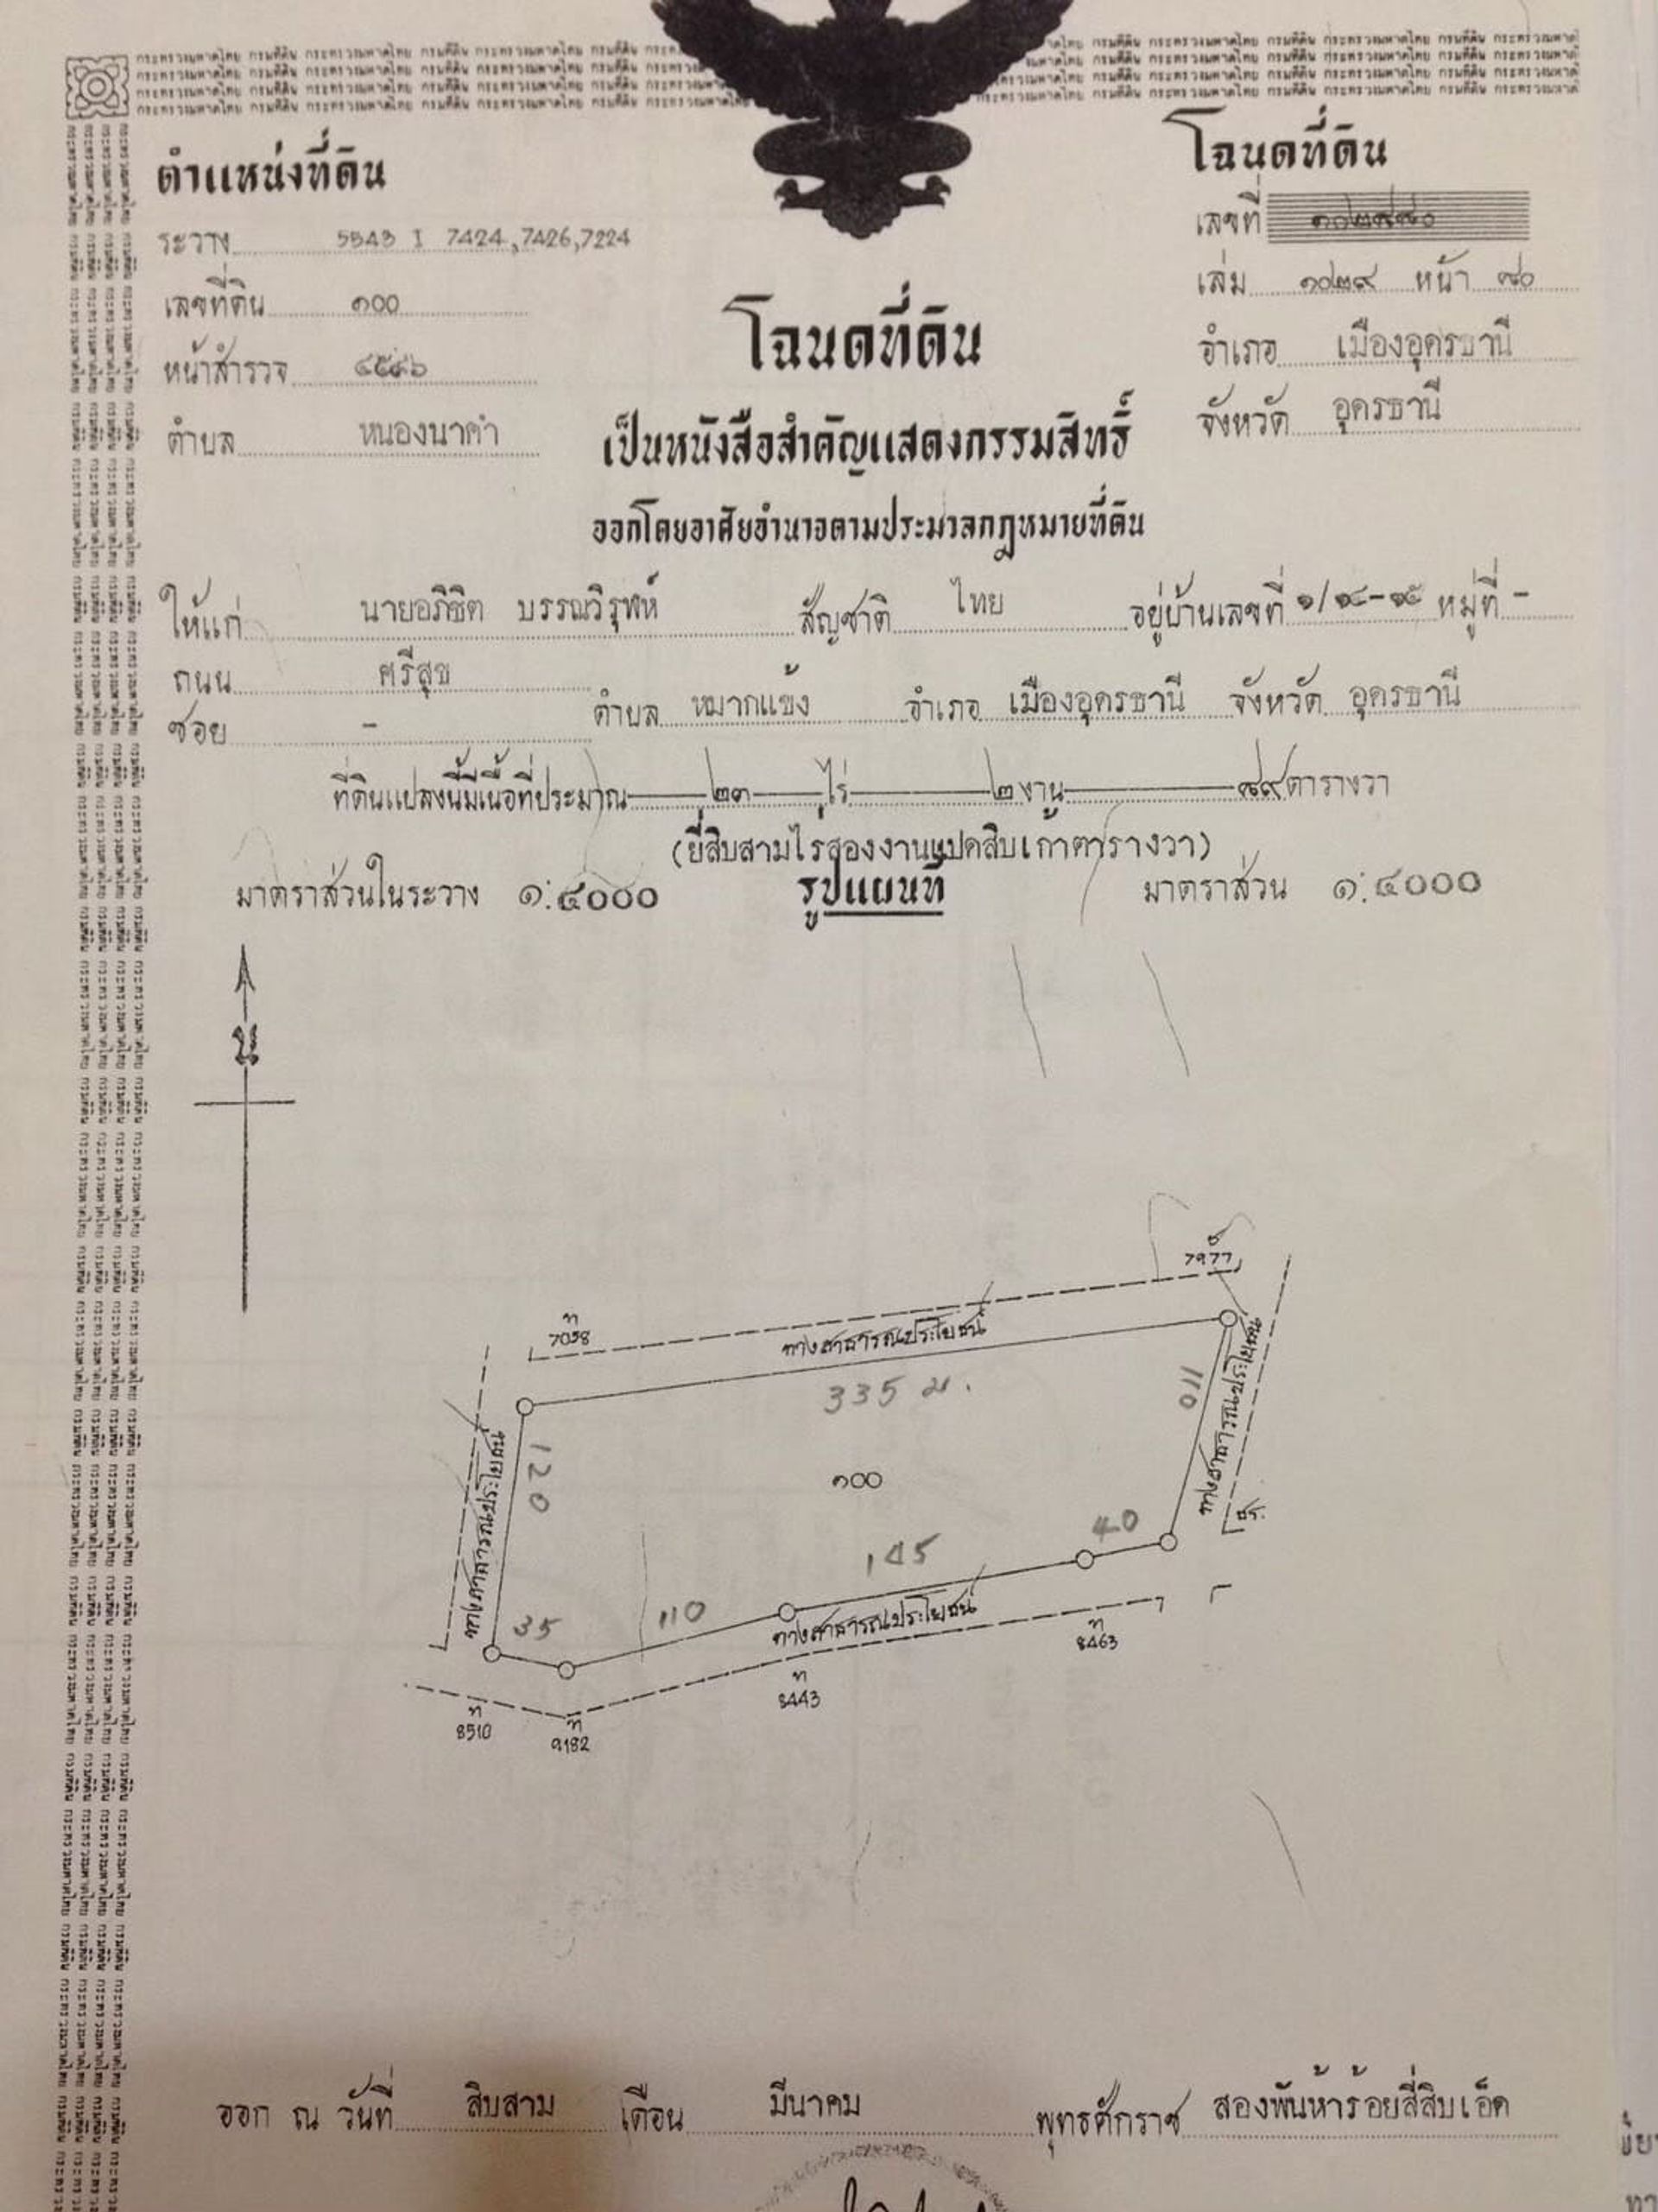 กระทรวงมหาดไทย กรมที่ดิน กระทรวงมหาดไทย กรมที่ดิน กระทรวงมหาดไทย กรมที่ดิน กระทรวงมหาดไทย กรมที่ดิน
ตำแหน่งที่ดิน
โฉนดที่ดิน
ระวาง 5543 I 7424,7426,7224
เลขที่
เลขที่ดิน ๑๐๐
เล่ม ๑๐๒๙ หน้า ๘๐
หน้าสำรวจ
โฉนดที่ดิน
อำเภอ เมืองอุดรธานี
ตำบล หนองนาคำ
จังหวัด อุดรธานี
เป็นหนังสือสำคัญแสดงกรรมสิทธิ์
ออกโดยอาศัยอำนาจตามประมวลกฎหมายที่ดิน
ให้แก่ นายอภิชิต บรรณวิรุฬห์ สัญชาติ ไทย อยู่บ้านเลขที่ ๑/๑๔-๑๕ หมู่ที่ -
ถนน ศรีสุข
ซอย - ตำบล หมากแข้ง อำเภอ เมืองอุดรธานี จังหวัด อุดรธานี
ที่ดินแปลงนี้มีเนื้อที่ประมาณ ๒๓ ไร่ ๒ งาน ๘๙ ตารางวา
(ยี่สิบสามไร่สองงานแปดสิบเก้าตารางวา)
มาตราส่วนในระวาง ๑:๔๐๐๐ รูปแผนที่ มาตราส่วน ๑:๔๐๐๐
น
7977
ท
7058
ทางสาธารณประโยชน์
335 ม.
110
ทางสาธารณประโยชน์
120
ทางสาธารณประโยชน์
๑๐๐
40
145
35
110
ทางสาธารณประโยชน์
ท
8463
ท
8443
ท
8510
ท
9182
ออก ณ วันที่ สิบสาม เดือน มีนาคม พุทธศักราช สองพันห้าร้อยสี่สิบเอ็ด